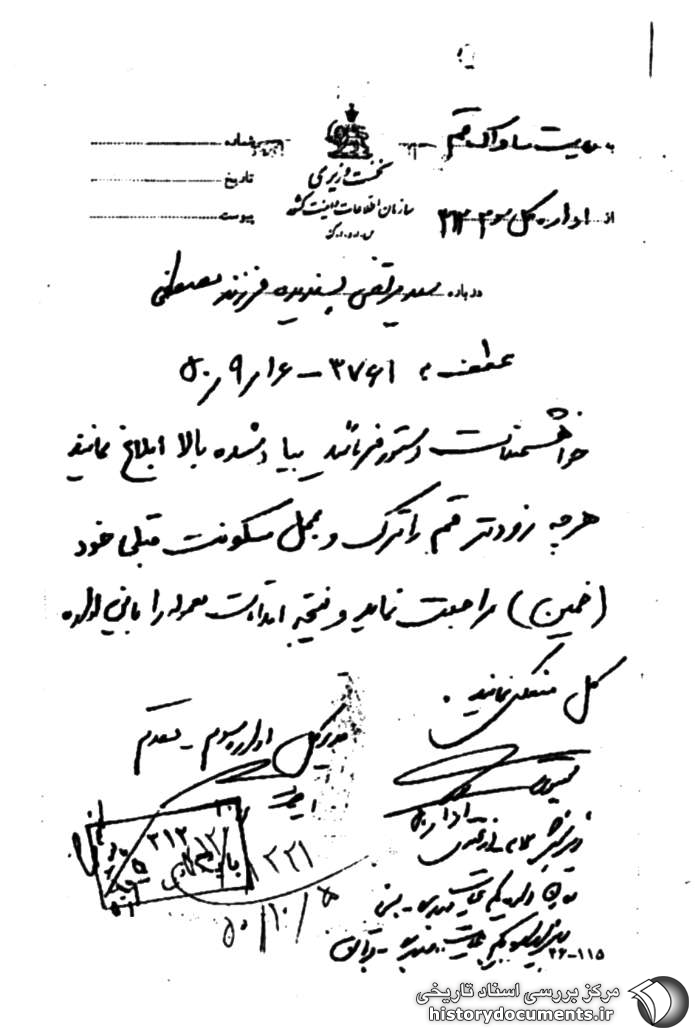 به ریاست ساواک قم
شماره
از اداره کل سوم ۳۱۲
تاریخ
پیوست
نخست وزیری
سازمان اطلاعات و امنیت کشور
س.ا.و.ا.ک
درباره سید مرتضی پسندیده فرزند مصطفی
عطف به ۳۷۶۱ - ۱۶/۹/۵۰
خواهشمند است دستور فرمائید بیاد شده بالا ابلاغ نمایند
هر چه زودتر قم را ترک و بمحل سکونت قبلی خود
(خمین) مراجعت نماید و نتیجه اقدامات معموله را باین اداره
کل منعکس نمایند.
مدیرکل اداره سوم - مقدم
۳۱۲
۱۲۲۱
۵۰/۱۰/۵
۳۶-۱۱۵
مرکز بررسی اسناد تاریخی
historydocuments.ir